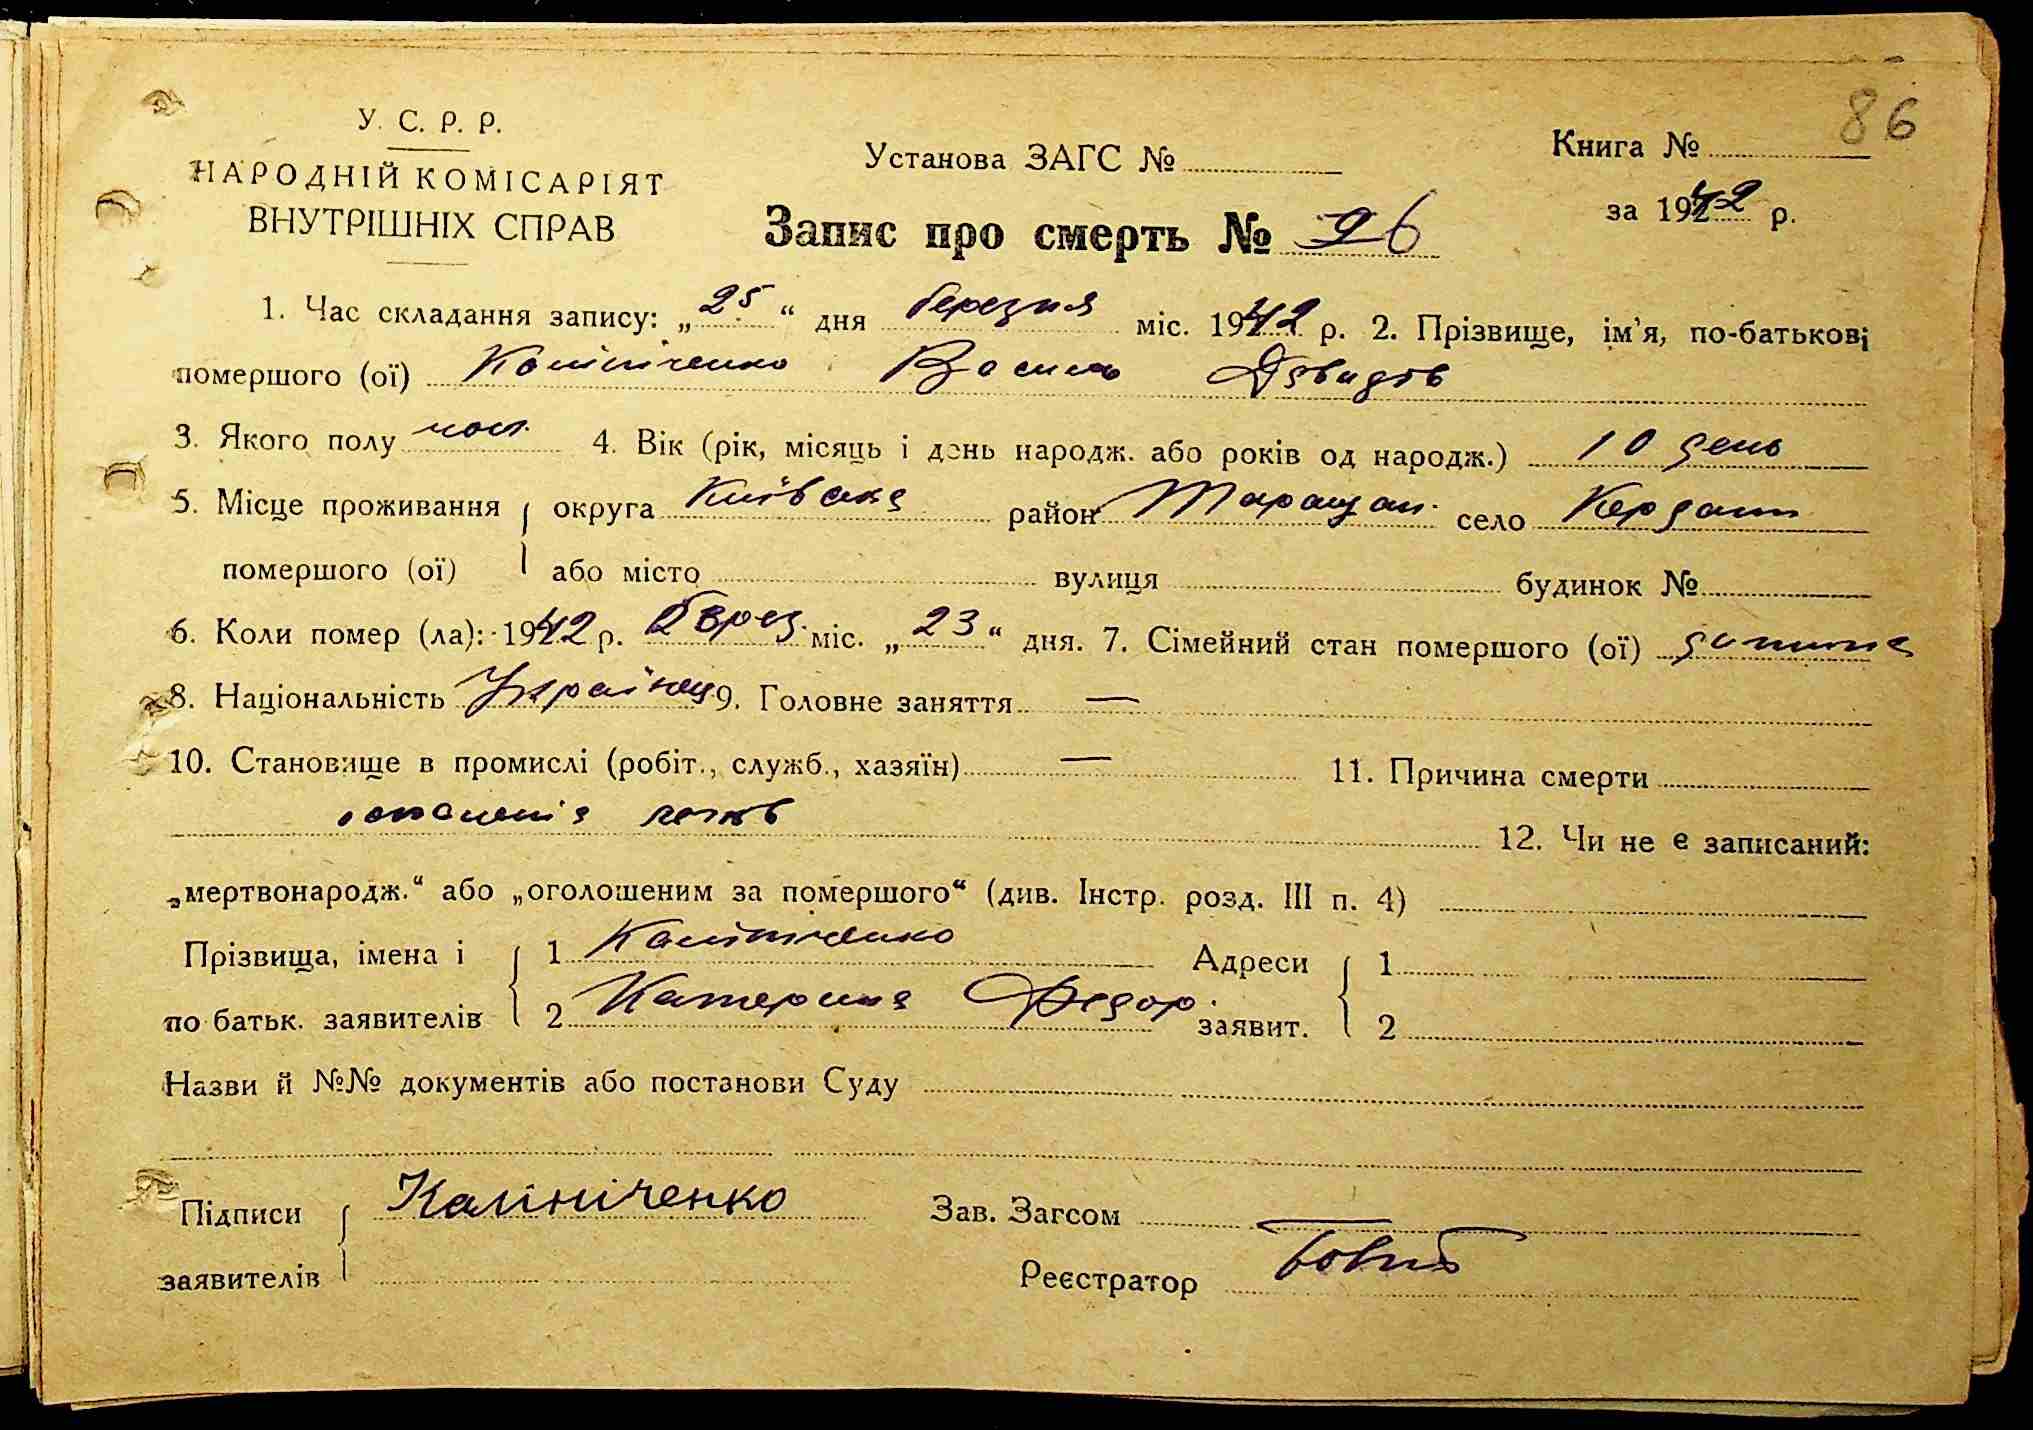 86
У. С. Р. Р.
НАРОДНІЙ КОМІСАРІЯТ
ВНУТРІШНІХ СПРАВ
Установа ЗАГС №
Книга №
за 1942 р.
Запис про смерть № 26
1. Час складання запису: „25“ дня березня міс. 1942 р. 2. Прізвище, ім'я, по-батькові
помершого (ої) Калініченко Василь Давидов
3. Якого полу чол. 4. Вік (рік, місяць і день народж. або років од народж.) 10 день
5. Місце проживання округа Київська район Таращан. село Кердани
помершого (ої) або місто вулиця будинок №
6. Коли помер (ла): 1942 р. берез. міс. „23“ дня. 7. Сімейний стан помершого (ої) дитина
8. Національність Українец 9. Головне заняття —
10. Становище в промислі (робіт., служб., хазяїн) — 11. Причина смерти
12. Чи не є записаний:
„мертвонародж.“ або „оголошеним за помершого“ (див. Інстр. розд. III п. 4)
Прізвища, імена і 1 Калініченко Адреси 1
по батьк. заявителів 2 Катерина Федор. заявит. 2
Назви й №№ документів або постанови Суду
Підписи Калініченко Зав. Загсом
заявителів Реєстратор